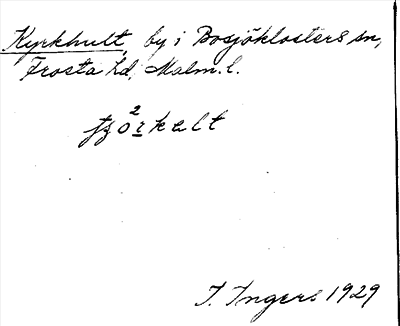 Kyrkhult, by i Bosjöklosters sn,
Frosta hd, Malm. l.
2
fʒorkelt
I. Ingers 1929